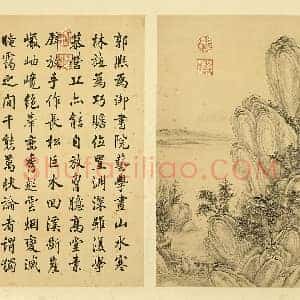 郭熙為御書院藝學畫山水寒
林施為巧贍位置淵深雖復學
慕營丘亦能自放胷臆高堂素
壁放手作長松巨木回溪斷崖
巖岫巉絕峯巒秀起雲煙變滅
晻靄之間千態萬狀論者謂獨
ShufaZiliao.com